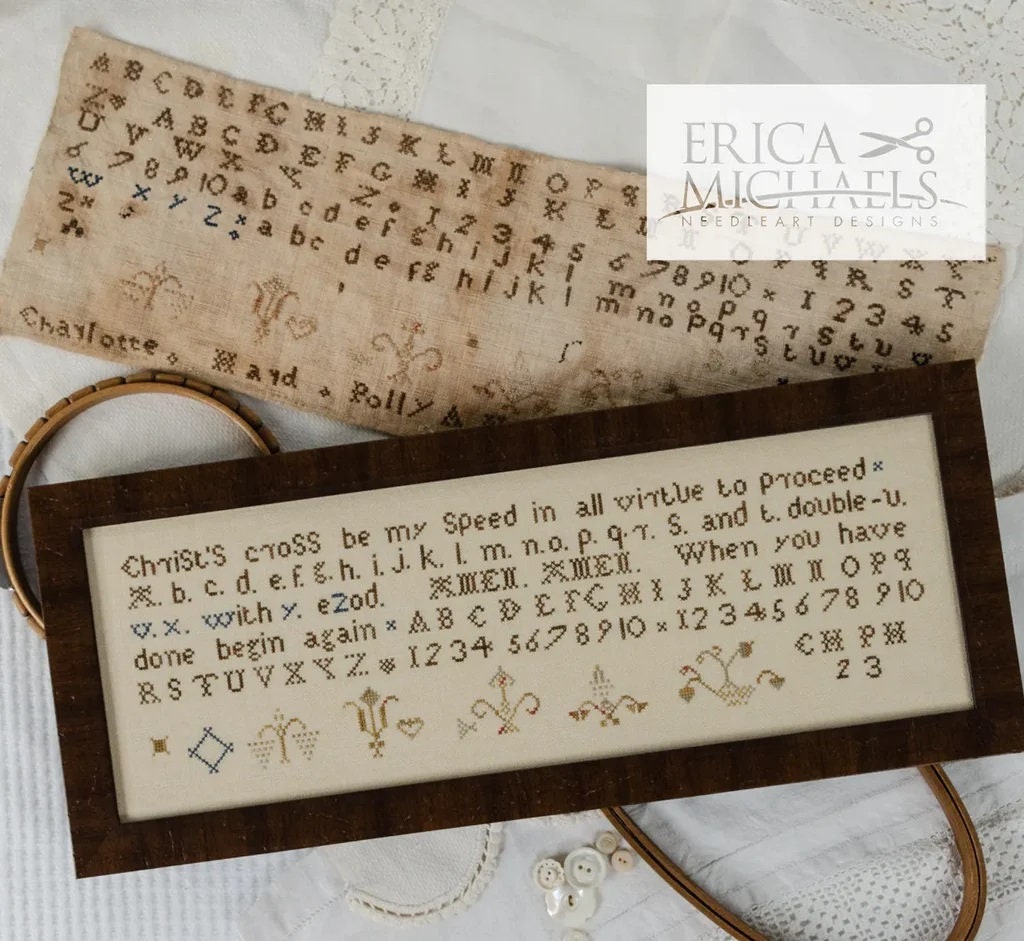 A B C D E F G H I J K L M N O P q
Z A B C D E F G H I J K L
U V W X Y Z 1 2 3 4 5 6 7 8 9 10 × 1 2 3 4 5
6 7 8 9 10 a b c d e f g h i j k l m n o p q r s t u v
w x y z × a b c d e f g h i j k l m n o p q r s t u v
Z ×
Charlotte . Hayd . Polly
ERICA
MICHAELS
NEEDLEART DESIGNS
ChriSt'S croSS be my Speed in all virtue to proceed ×
A. b. c. d. e. f. g. h. i. j. k. l. m. n. o. p. q. r. S. and t. double-u.
v. x. with y. eZod. AMEN. AMEN. When you have
done begin again × A B C D E F G H I J K L M N O P q
R S T U V X Y Z 1 2 3 4 5 6 7 8 9 10 × 1 2 3 4 5 6 7 8 9 10
C H P H
2 3